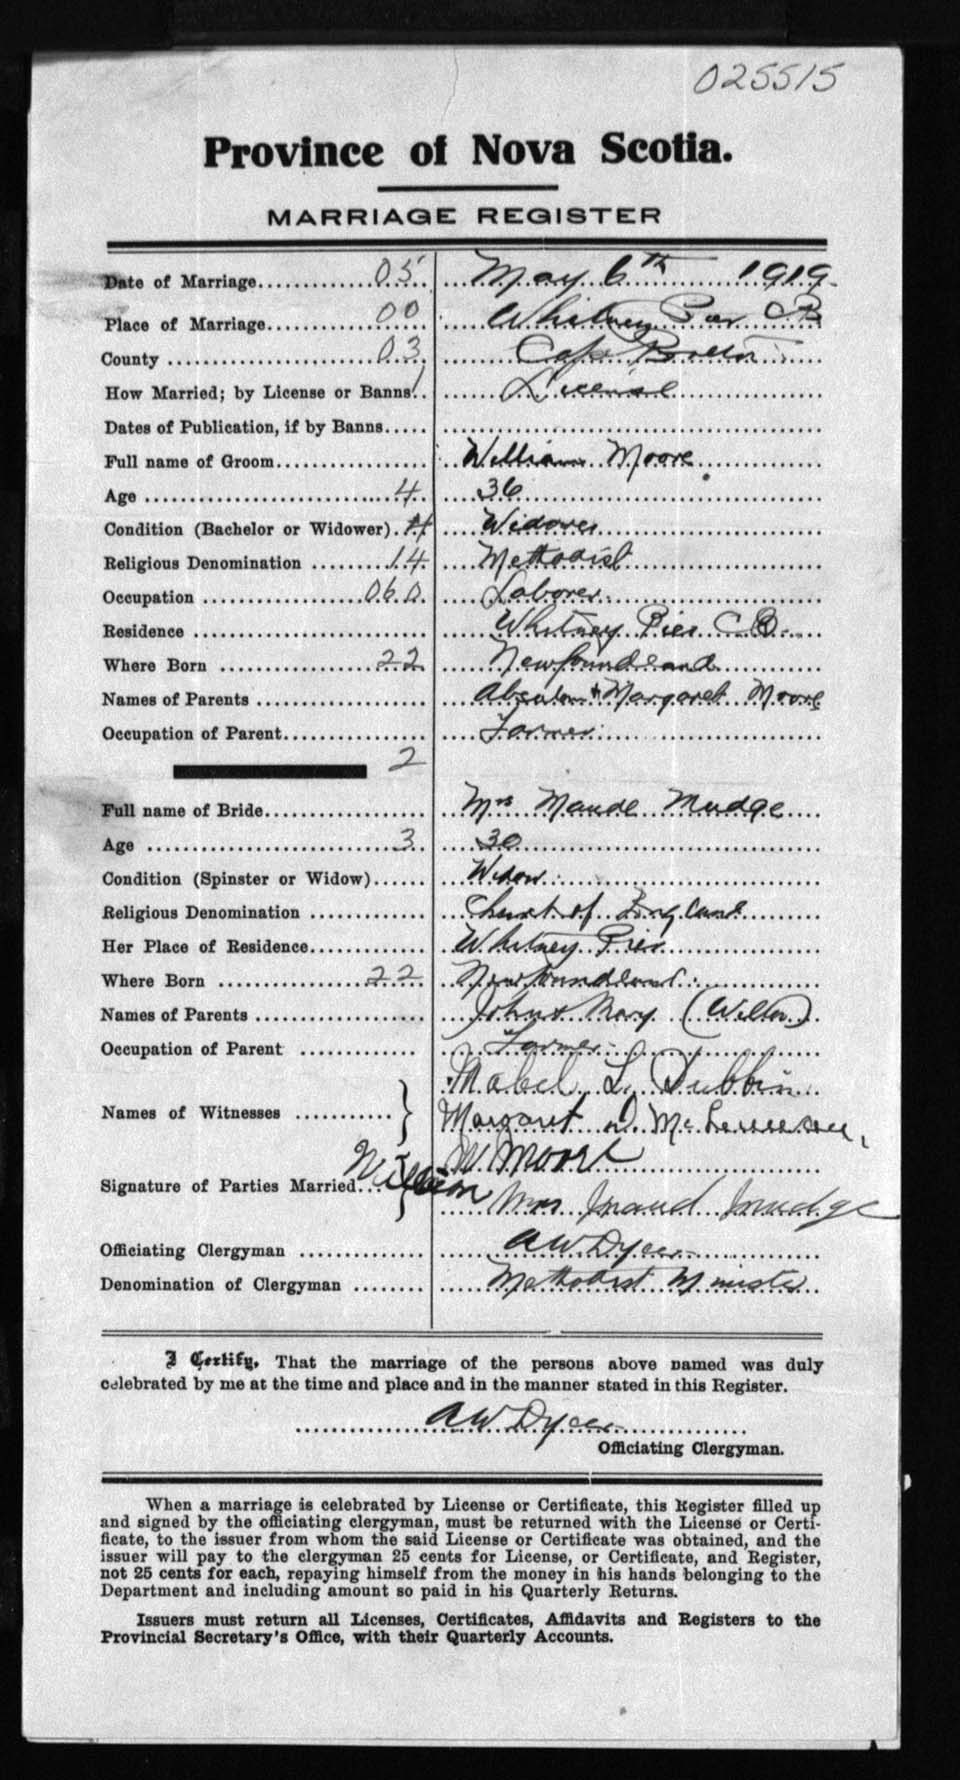 025515
Province of Nova Scotia.
MARRIAGE REGISTER
Date of Marriage 05 May 6th 1919
Place of Marriage 00 Whitney Pier CB
County 03 Cape Breton
How Married; by License or Banns 1 License
Dates of Publication, if by Banns
Full name of Groom William Moore
Age 4 36
Condition (Bachelor or Widower) Widower
Religious Denomination 14 Methodist
Occupation 060 Laborer
Residence Whitney Pier CB
Where Born 22 Newfoundland
Names of Parents Absalom & Margaret Moore
Occupation of Parent Farmer
2
Full name of Bride Mrs Maude Mudge
Age 3 30
Condition (Spinster or Widow) Widow
Religious Denomination Church of England
Her Place of Residence Whitney Pier
Where Born 22 Newfoundland
Names of Parents John & Mary
Occupation of Parent Farmer
Mabel L.
Names of Witnesses Margaret D.
W Moore
Signature of Parties Married William
Mrs Maud Mudge
Officiating Clergyman AW Dyer
Denomination of Clergyman Methodist Minister
I Certify, That the marriage of the persons above named was duly
celebrated by me at the time and place and in the manner stated in this Register.
AW Dyer
Officiating Clergyman.
When a marriage is celebrated by License or Certificate, this Register filled up
and signed by the officiating clergyman, must be returned with the License or Certi-
ficate, to the issuer from whom the said License or Certificate was obtained, and the
issuer will pay to the clergyman 25 cents for License, or Certificate, and Register,
not 25 cents for each, repaying himself from the money in his hands belonging to the
Department and including amount so paid in his Quarterly Returns.
Issuers must return all Licenses, Certificates, Affidavits and Registers to the
Provincial Secretary's Office, with their Quarterly Accounts.